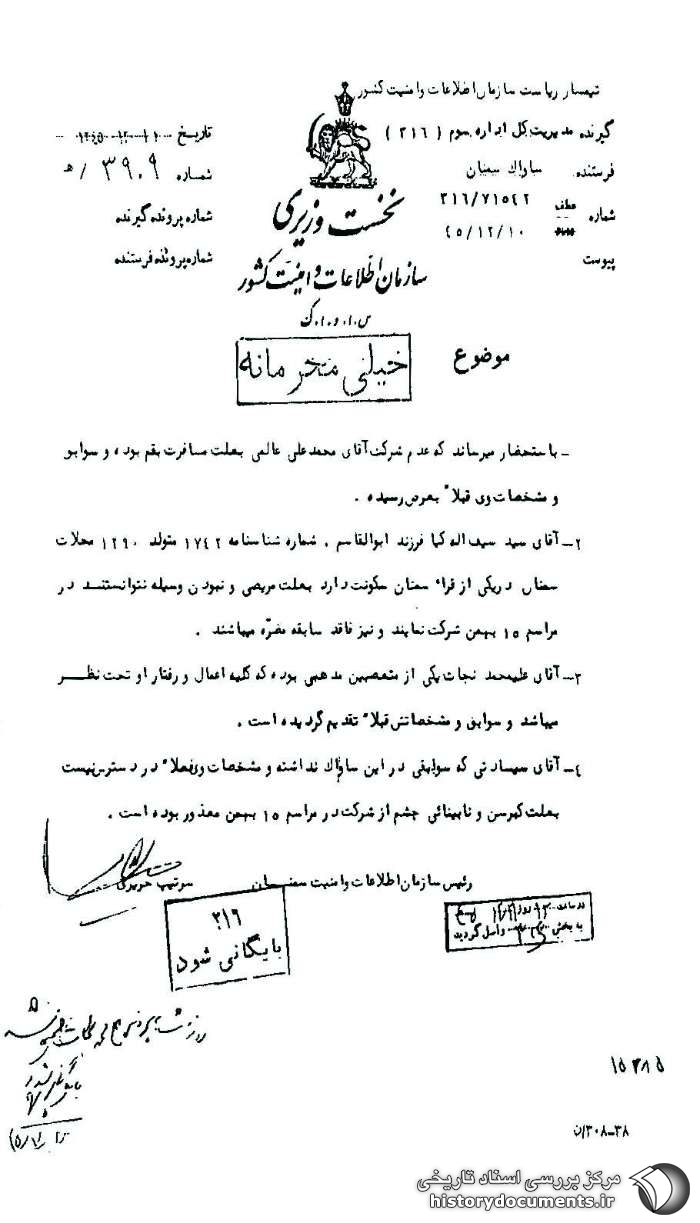 تیمسار ریاست سازمان اطلاعات و امنیت کشور
گیرنده مدیریت کل اداره سوم ( ۳۱۶ )
فرستنده ساواک سمنان
شماره عطف ۳۱۶/۷۱۵۴۲
۴۵/۱۲/۱۰
پیوست
تاریخ
شماره ۳۹۰۹ / ه
شماره پرونده گیرنده
شماره پرونده فرستنده
نخست وزیری
سازمان اطلاعات و امنیت کشور
س.ا.و.ا.ک
موضوع
خیلی محرمانه
ـ باستحضار میرساند که عدم شرکت آقای محمدعلی عالمی بعلت مسافرت بقم بوده و سوابق
و مشخصات وی قبلا" بعرض رسیده .
۲ـ آقای سید سیف اله کیا فرزند ابوالقاسم . شماره شناسنامه ۱۷۴۲ متولد ۱۲۹۰ محلات
سمنان در یکی از قراء سمنان سکونت دارد بعلت مریضی و نبودن وسیله نتوانستند در
مراسم ۱۵ بهمن شرکت نمایند و نیز فاقد سابقه مضره میباشند .
۳ـ آقای علیمحمد نجات یکی از متعصبین مذهبی بوده که کلیه اعمال و رفتار او تحت نظر
میباشد و سوابق و مشخصاتش قبلا" تقدیم گردیده است .
۴ـ آقای سیادتی که سوابقی در این ساواک نداشته و مشخصات وی فعلا" در دسترس نیست
بعلت کبر سن و نابینائی چشم از شرکت در مراسم ۱۵ بهمن معذور بوده است .
رئیس سازمان اطلاعات و امنیت سمنان
سرتیپ حریری
۳۱۶
بایگانی شود
در ساعت روز
به بخش ۳۱۶ واصل گردید
بایگانی شود
۱۵۳۸۵
۳۸-۳۰۸/ن
مرکز بررسی اسناد تاریخی
historydocuments.ir